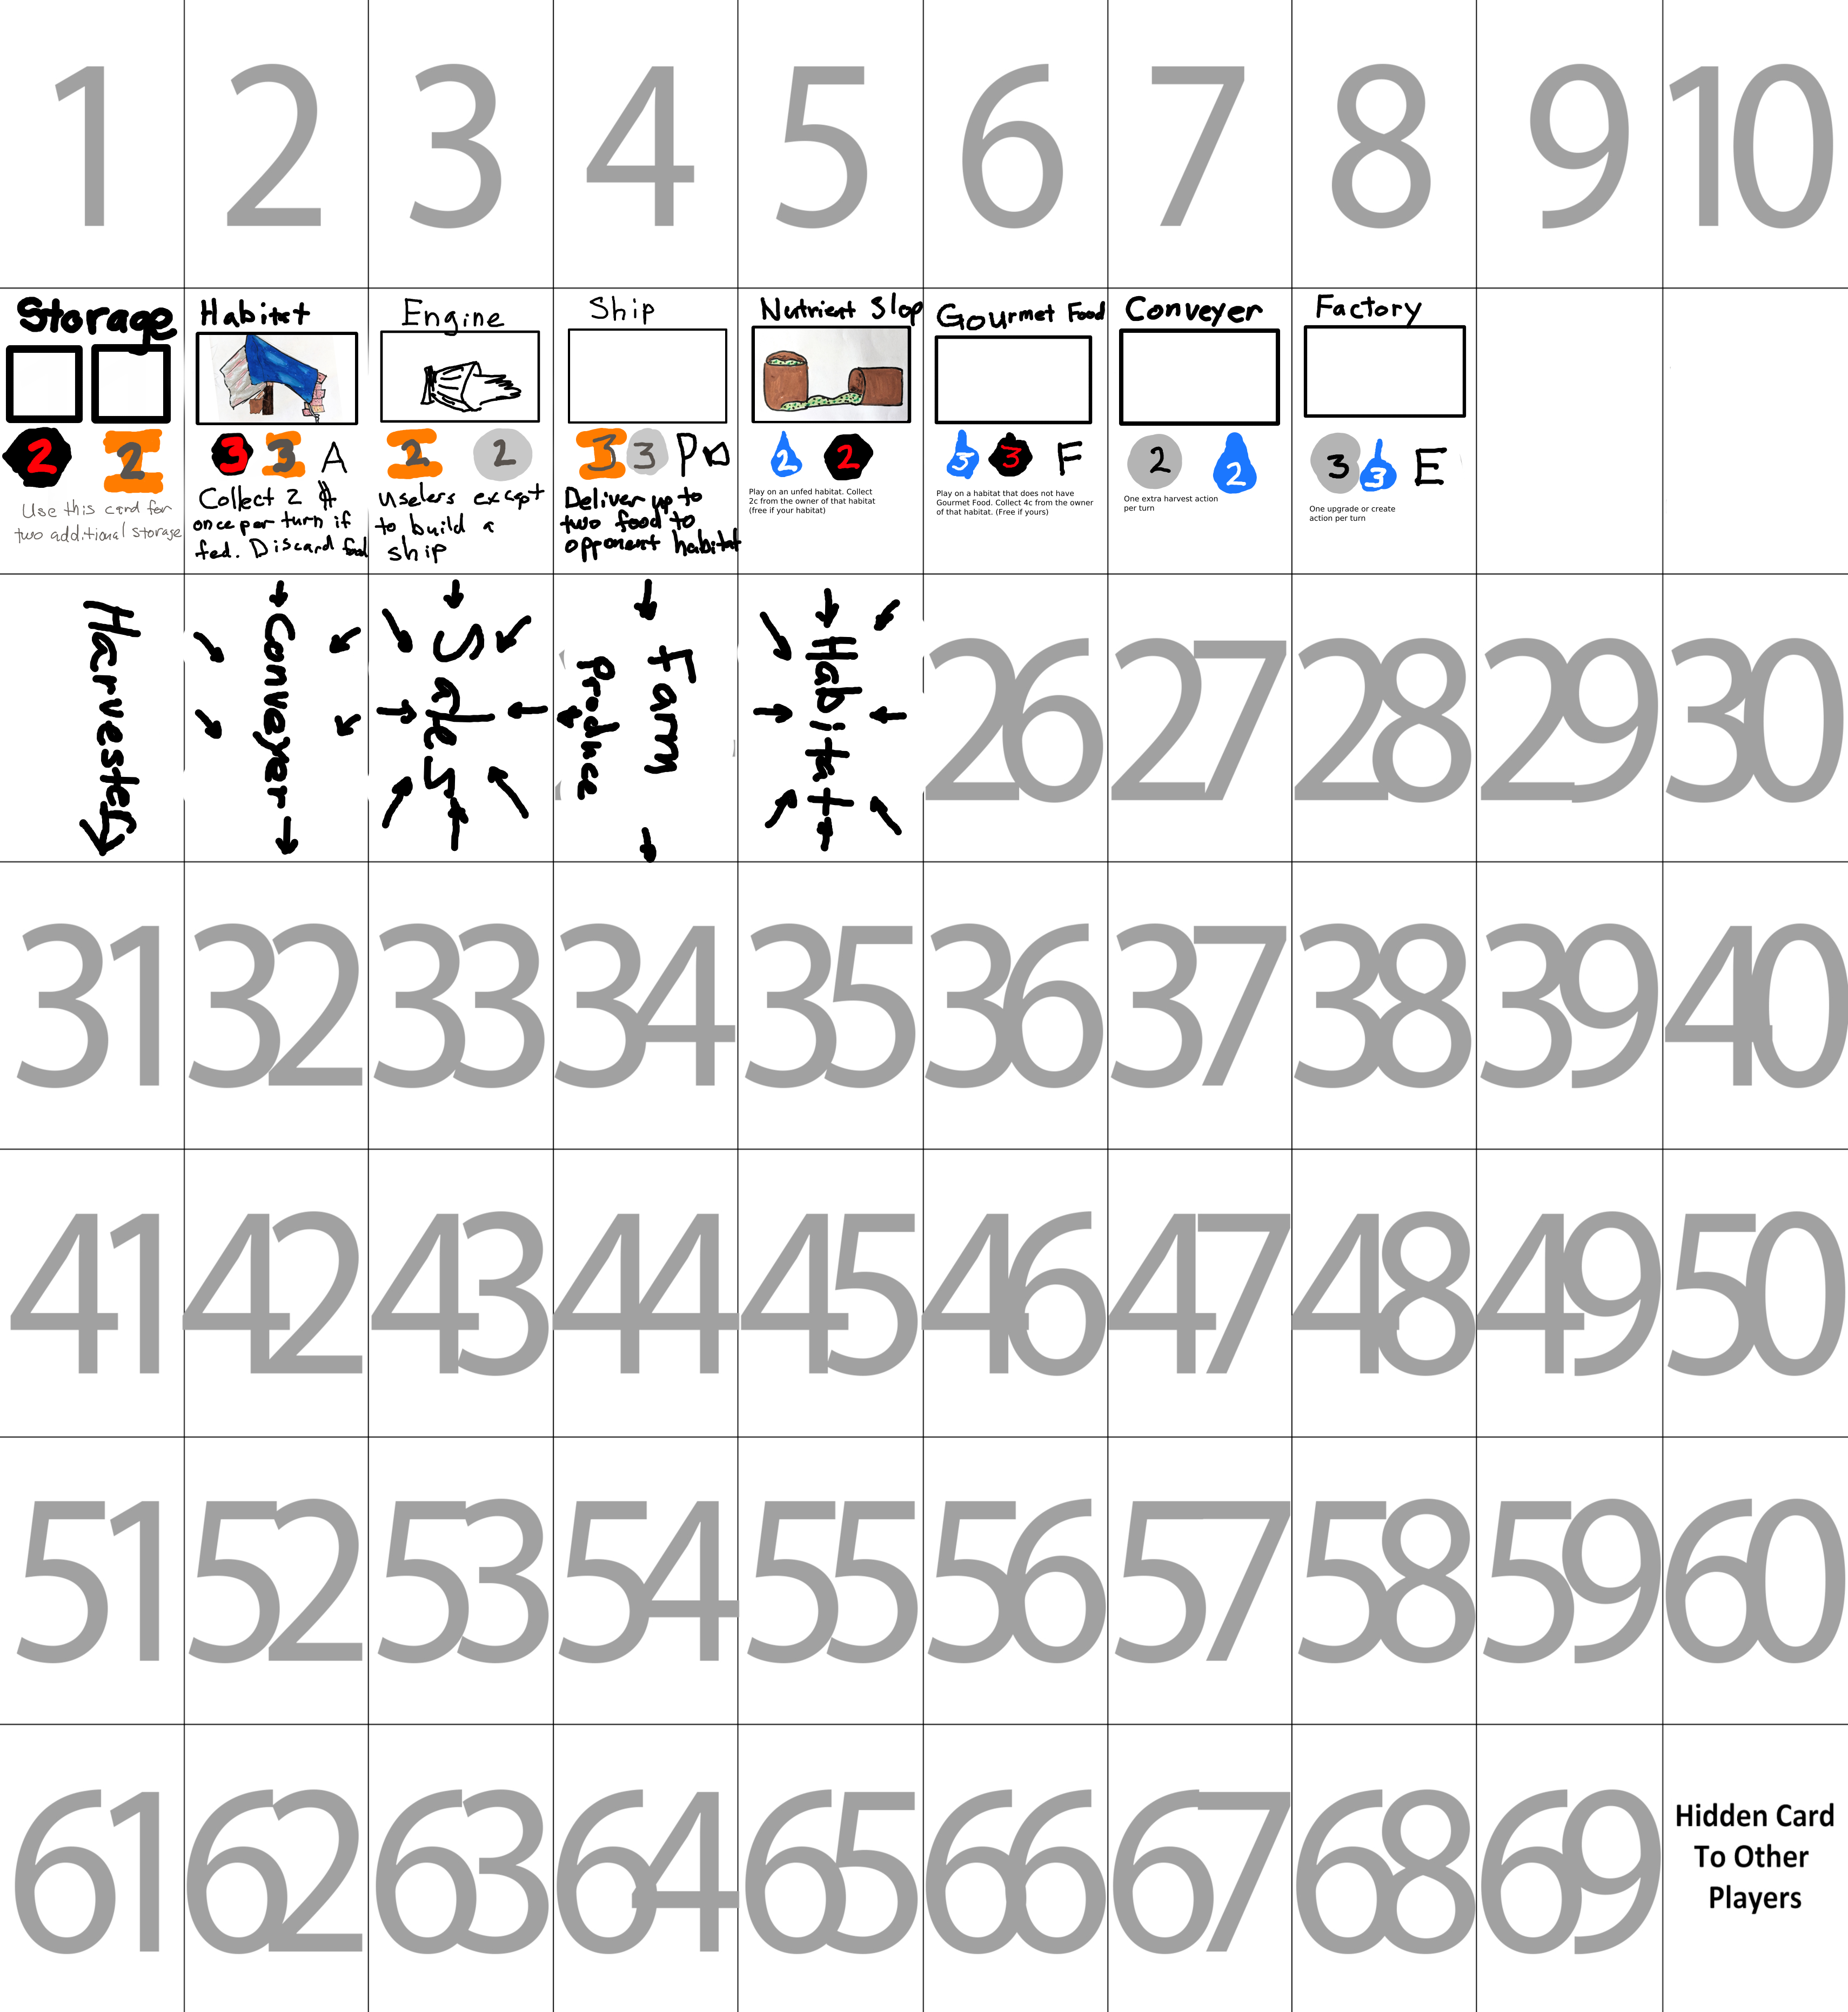 1 2 3 4 5 6 7 8 9 10
Storage
2 2
Use this card for
two additional storage
Habitat
3 3 A
Collect 2 $
once per turn if
fed. Discard food
Engine
2 2
Useless except
to build a
ship
Ship
3 3 P
Deliver up to
two food to
opponent habitat
Nutrient Slop
2 2
Play on an unfed habitat. Collect
2c from the owner of that habitat
(free if your habitat)
Gourmet Food
3 3 F
Play on a habitat that does not have
Gourmet Food. Collect 4c from the owner
of that habitat. (Free if yours)
Conveyer
2 2
One extra harvest action
per turn
Factory
3 3 E
One upgrade or create
action per turn
Harvester
Conveyer
Farm
Produce
Habitat
26 27 28 29 30
31 32 33 34 35 36 37 38 39 40
41 42 43 44 45 46 47 48 49 50
51 52 53 54 55 56 57 58 59 60
61 62 63 64 65 66 67 68 69
Hidden Card
To Other
Players